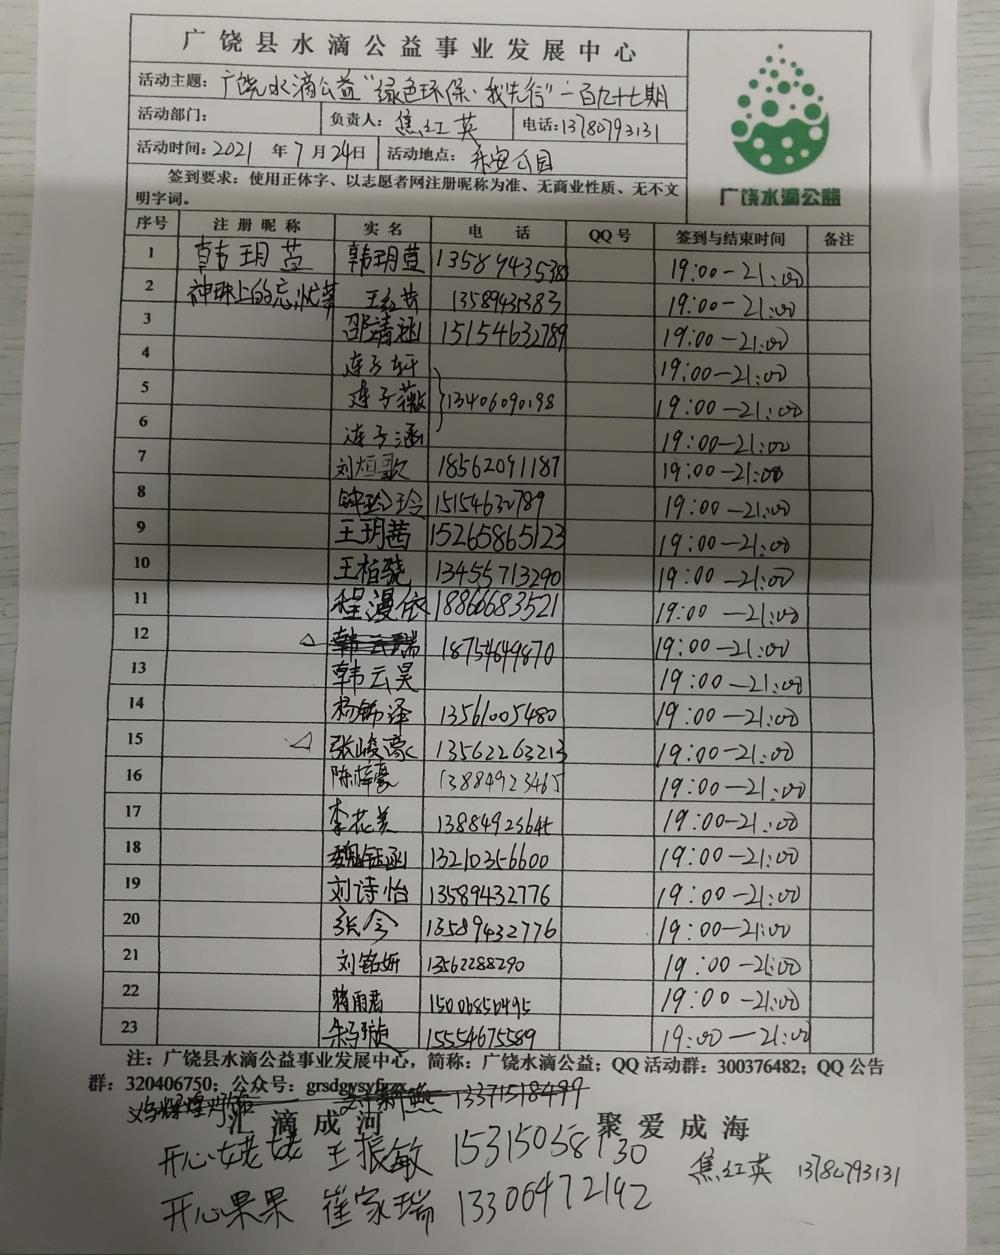 广饶县水滴公益事业发展中心
活动主题：广饶水滴公益“绿色环保·我先行”一百九十七期
活动部门： 负责人：焦红英 电话：13780793131
活动时间：2021 年 7 月 24 日 活动地点：乐安公园
签到要求：使用正体字、以志愿者网注册昵称为准、无商业性质、无不文
明字词。
广饶水滴公益
序号 注册昵称 实名 电话 QQ号 签到与结束时间 备注
1 韩玥萱 韩玥萱 13589435383 19:00-21:00
2 神珠上的忘忧草 王红茜 13589435383 19:00-21:00
3 邵靖涵 15154632789 19:00-21:00
4 连子轩 19:00-21:00
5 连子薇 13406090198 19:00-21:00
6 连子涵 19:00-21:00
7 刘烜歌 18562091187 19:00-21:00
8 钟玲玲 15154632789 19:00-21:00
9 王玥茜 15265865123 19:00-21:00
10 王柏骁 13455713290 19:00-21:00
11 程漫依 18866683521 19:00-21:00
12 韩云瑞 18754649870 19:00-21:00
13 韩云昊 19:00-21:00
14 杨铈泽 13561005480 19:00-21:00
15 张峻豪 13562263213 19:00-21:00
16 陈梓豪 13884923465 19:00-21:00
17 李花美 13884923645 19:00-21:00
18 魏钰涵 13210356600 19:00-21:00
19 刘诗怡 13589432776 19:00-21:00
20 张令 13589432776 19:00-21:00
21 刘铭妍 13562288290 19:00-21:00
22 蒋雨君 15006850495 19:00-21:00
23 朱子璇 15554675589 19:00-21:00
注：广饶县水滴公益事业发展中心，简称：广饶水滴公益；QQ活动群：300376482；QQ公告
群：320406750；公众号：grsdgysyfzzx
13371518499
汇滴成河 聚爱成海
开心姥姥 王振敏 15315058730
焦红英 13780793131
开心果果 崔家瑞 13306472192